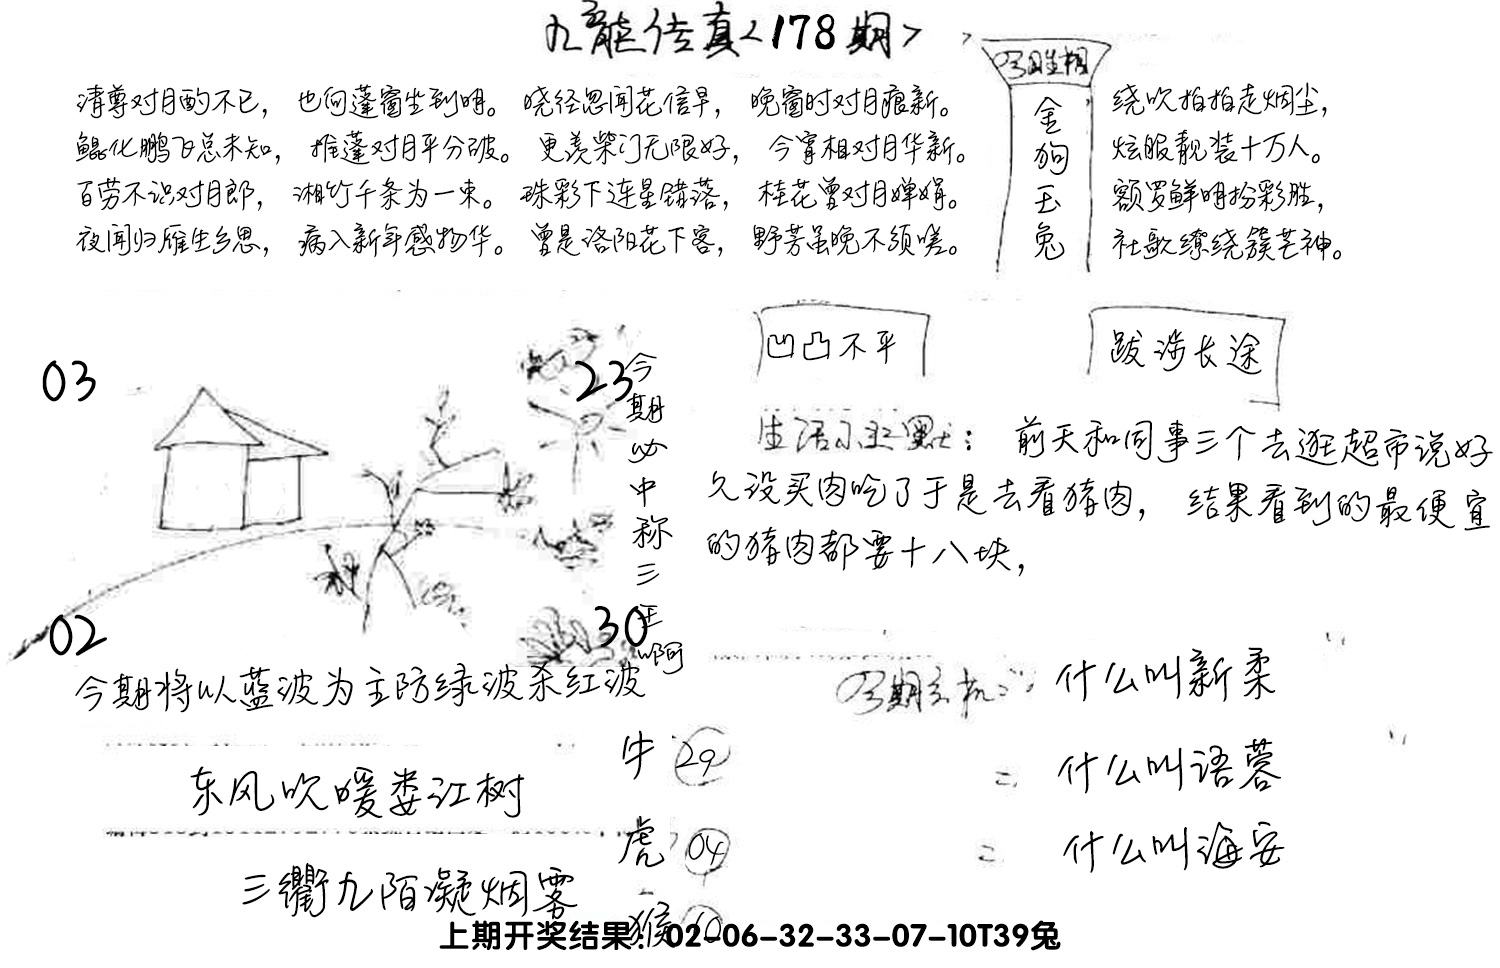 九龙传真<178期>
清尊对月酌不已，也向蓬窗坐到明。晓径思闻花信早，晚窗时对月痕新。
鲲化鹏飞总未知，推蓬对月平分破。更羡柴门无限好，今宵相对月华新。
百劳不识对月郎，湘竹千条为一束。珠彩下连星错落，桂花曾对月婵娟。
夜闻归雁生乡思，病入新年感物华。曾是洛阳花下客，野芳虽晚不须嗟。
今期生相
金狗玉兔
绕吹拍拍走烟尘，
炫服靓装十万人。
额罗鲜明扮彩胜，
社歌缭绕簇芒神。
凹凸不平
跋涉长途
03
23
02
30
今期必中称三王啊
生活小幽默：前天和同事三个去逛超市说好
久没买肉吃了于是去看猪肉，结果看到的最便宜
的猪肉都要十八块，
今期将以蓝波为主防绿波杀红波
东风吹暖娄江树
三衢九陌凝烟雾
牛 29
虎 04
猴 10
今期玄机：什么叫新柔
二 什么叫语蓉
二 什么叫海安
上期开奖结果：02-06-32-33-07-10T39兔